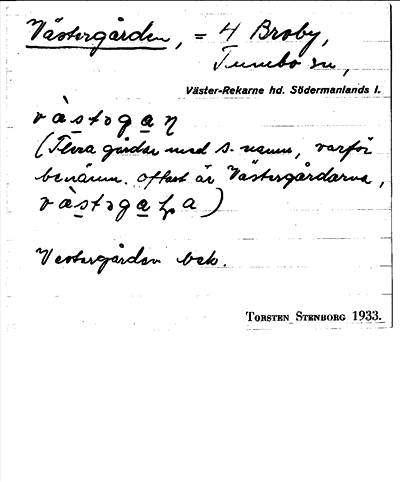 Västergården, = 4 Broby,
Tumbo sn,
Väster-Rekarne hd. Södermanlands l.
(Flera gårdar med s. namn, varför
benämn. oftast är Västergårdarna,
Vestergården bek.
TORSTEN STENBORG 1933.